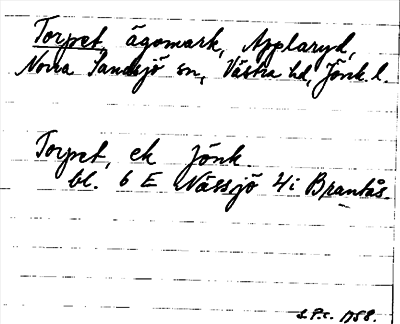 Torpet, ägomark, Applaryd,
Norra Sandsjö sn, Västra hd, Jönk. l.
Torpet, ek Jönk.
bl. 6 E Nässjö 4i Brantås.
1958.